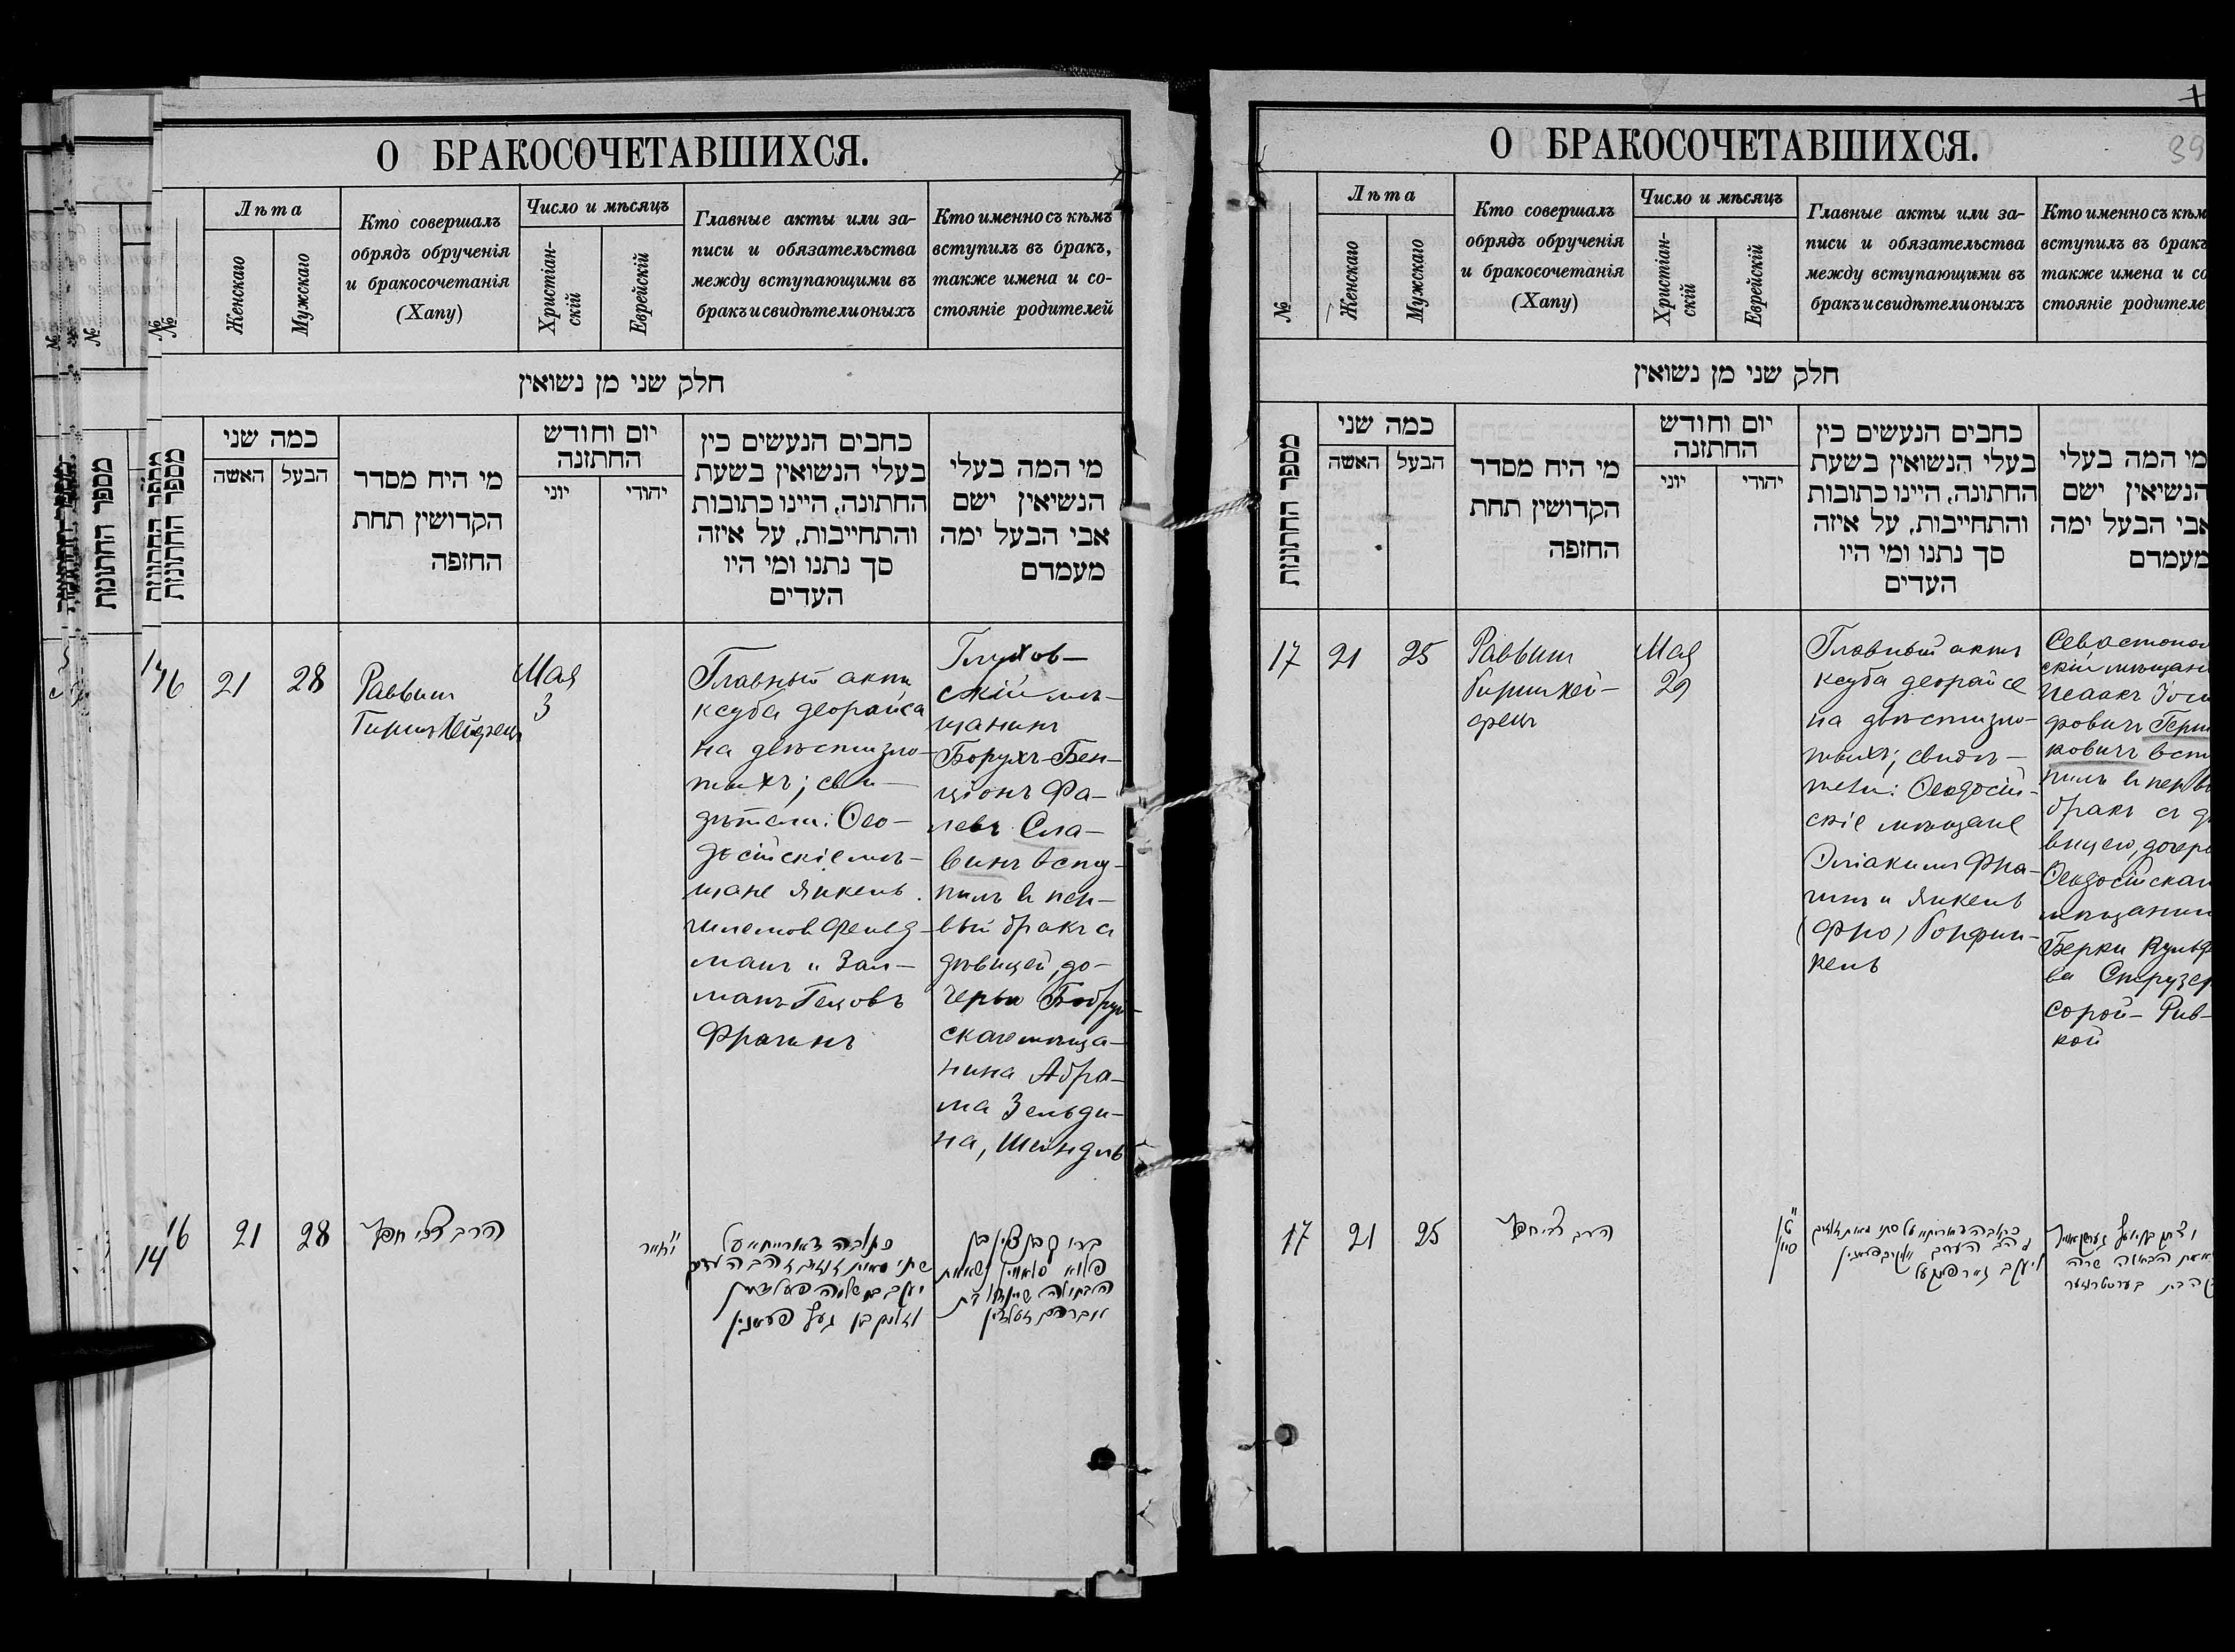 О БРАКОСОЧЕТАВШИХСЯ.
№
Лѣта
Женскаго
Мужскаго
Кто совершалъ
обрядъ обрученія
и бракосочетанія
(Хапу)
Число и мѣсяцъ
Христіан-
скій
Еврейскій
Главные акты или за-
писи и обязательства
между вступающими въ
бракъ и свидѣтели оныхъ
Кто именно съ кѣмъ
вступилъ въ бракъ,
также имена и со-
стояніе родителей
חלק שני מן נשואין
מספר החתונות
כמה שני
האשה
הבעל
מי היח מסדר
הקדושין תחת
החזפה
יום וחודש
החתזנה
יוני
יהודי
כחבים הנעשים כין
בעלי הנשואין בשעת
החתונה, היינו כתובות
והתחייבות, על איזה
סך נתנו ומי היו
העדים
מי המה בעלי
הנשיאין ישם
אבי הבעל ימה
מעמדם
16
21
28
Раввин
Гирш Хейфец
Мая
3
Главный актъ
ксуба деорайса
на двѣсти зло-
тыхъ; сви-
дѣтели: Ѳео-
досійскіе мѣ-
щане Янкель
Шлемов Фельд-
манъ и Зал-
манъ Гецовъ
Фрагинъ
Глухов-
скій мѣ-
щанинъ
Борухъ-Бен-
ціонъ Фа-
левъ Сла-
винъ всту-
пилъ в пер-
вый бракъ съ
дѣвицей, до-
черью Бобруй-
скаго мѣща-
нина Абра-
ма Зельди-
на, Шейндль
16
14
21
28
הרב צבי חפץ
כתובה דאורייתא על
שתי מאות זוזים
יעקב בן שלמה
וזלמן בן געץ
ברוך בן ציון בן
הבתולה שיינדל בת
אברהם זעלדין
О БРАКОСОЧЕТАВШИХСЯ.
39
№
Лѣта
Женскаго
Мужскаго
Кто совершалъ
обрядъ обрученія
и бракосочетанія
(Хапу)
Число и мѣсяцъ
Христіан-
скій
Еврейскій
Главные акты или за-
писи и обязательства
между вступающими въ
бракъ и свидѣтели оныхъ
Кто именно съ кѣм
вступилъ въ бракъ
также имена и со
стояніе родителе
חלק שני מן נשואין
מספר החתונות
כמה שני
האשה
הבעל
מי היח מסדר
הקדושין תחת
החזפה
יום וחודש
החתזנה
יוני
יהודי
כחבים הנעשים כין
בעלי הנשואין בשעת
החתונה, היינו כתובות
והתחייבות, על איזה
סך נתנו ומי היו
העדים
מי המה בעלי
הנשיאין ישם
אבי הבעל ימה
מעמדם
17
21
25
Раввин
Гирш Хей-
фец
Мая
29
Главный актъ
ксуба деорайсе
на двѣсти зло-
тыхъ; свидѣ-
тели: Ѳеодосій-
скіе мѣщане
Эліакимъ Фра-
гинъ и Янкель
Кель
Севастополь
скій мѣщани
Исаакъ Іоси
фовичъ Герш
ковичъ всту
пилъ в первы
бракъ съ дѣ
вицею, дочерь
Ѳеодосійскаго
мѣщанина
Берки Вульфо
ва Струзер
Сорой-Рив-
кой
17
21
25
הרב צבי חפץ
ט"ו
סיון